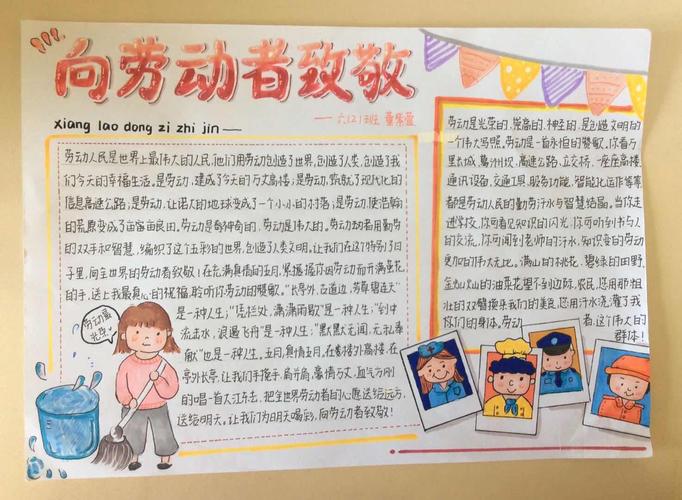 向劳动者致敬
Xiang lao dong zi zhi jin
六(2)班
劳动人民是世界上最伟大的人民,他们用劳动创造了世界,创造了人类,创造了我
们今天的幸福生活。是劳动,建成了今天的万丈高楼;是劳动,筑就了现代化的
信息高速公路;是劳动,让偌大的地球变成了一个小小的村落;是劳动,使浩翰
的荒原变成了亩亩良田。劳动是奇神奇的,劳动是伟大的。劳动劳者用勤劳
的双手和智慧,编织了这个五彩的世界,创造了人类文明。让我们在这个特别的日
子里,向全世界的劳动者致敬!在充满真情的五月,紧握握你因劳动而开满茧花
的手,送上我最真心的祝福,聆听你劳动的赞歌。“长亭外,古道边,芳草碧连天”
是一种人生;“凭栏处,潇潇雨歇”是一种人生;“到中
流击水,浪遏飞舟”是一种人生;“默默无闻,无私奉
献”也是一种人生。五月,真情五月,在高楼外高楼,在
亭外长亭,让我们手挽手,肩并肩,豪情万丈,血气方刚
的唱一首大江东去,把全世界劳动者的心愿送给远方,
送给明天。让我们为明天喝彩,向劳动者致敬!
劳动最
光荣!
劳动是光荣的,崇高的,神圣的,是创造文明的
一个伟大写照。劳动是一首永恒的赞歌,你看万
里长城,葛洲坝,高速公路,立交桥,一座座高楼
通讯设备,交通工具,服务功能,智能化运作等等
都是劳动人民的勤劳汗水与智慧结晶。当你走
进学校,你可看见知识的闪光,你可听到书与人
的交流,你可闻到老师的汗水,知识套的劳动
更加的伟大无比。满山的桃花,碧绿的田野,
金灿灿的油菜花望不到边际,农民,您用那粗
壮的双臂换来我们的美食,您用汗水浇灌了我
你们的身体。劳动
者,这个伟大的
群体!